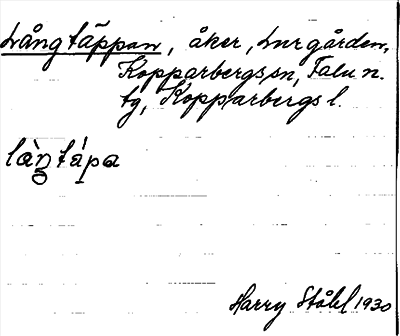 Långtäppan, åker, Lurgården,
Kopparbergs sn, Falu n.
tg, Kopparbergs l.
là̀ŋtápa
Harry Ståhl 1930